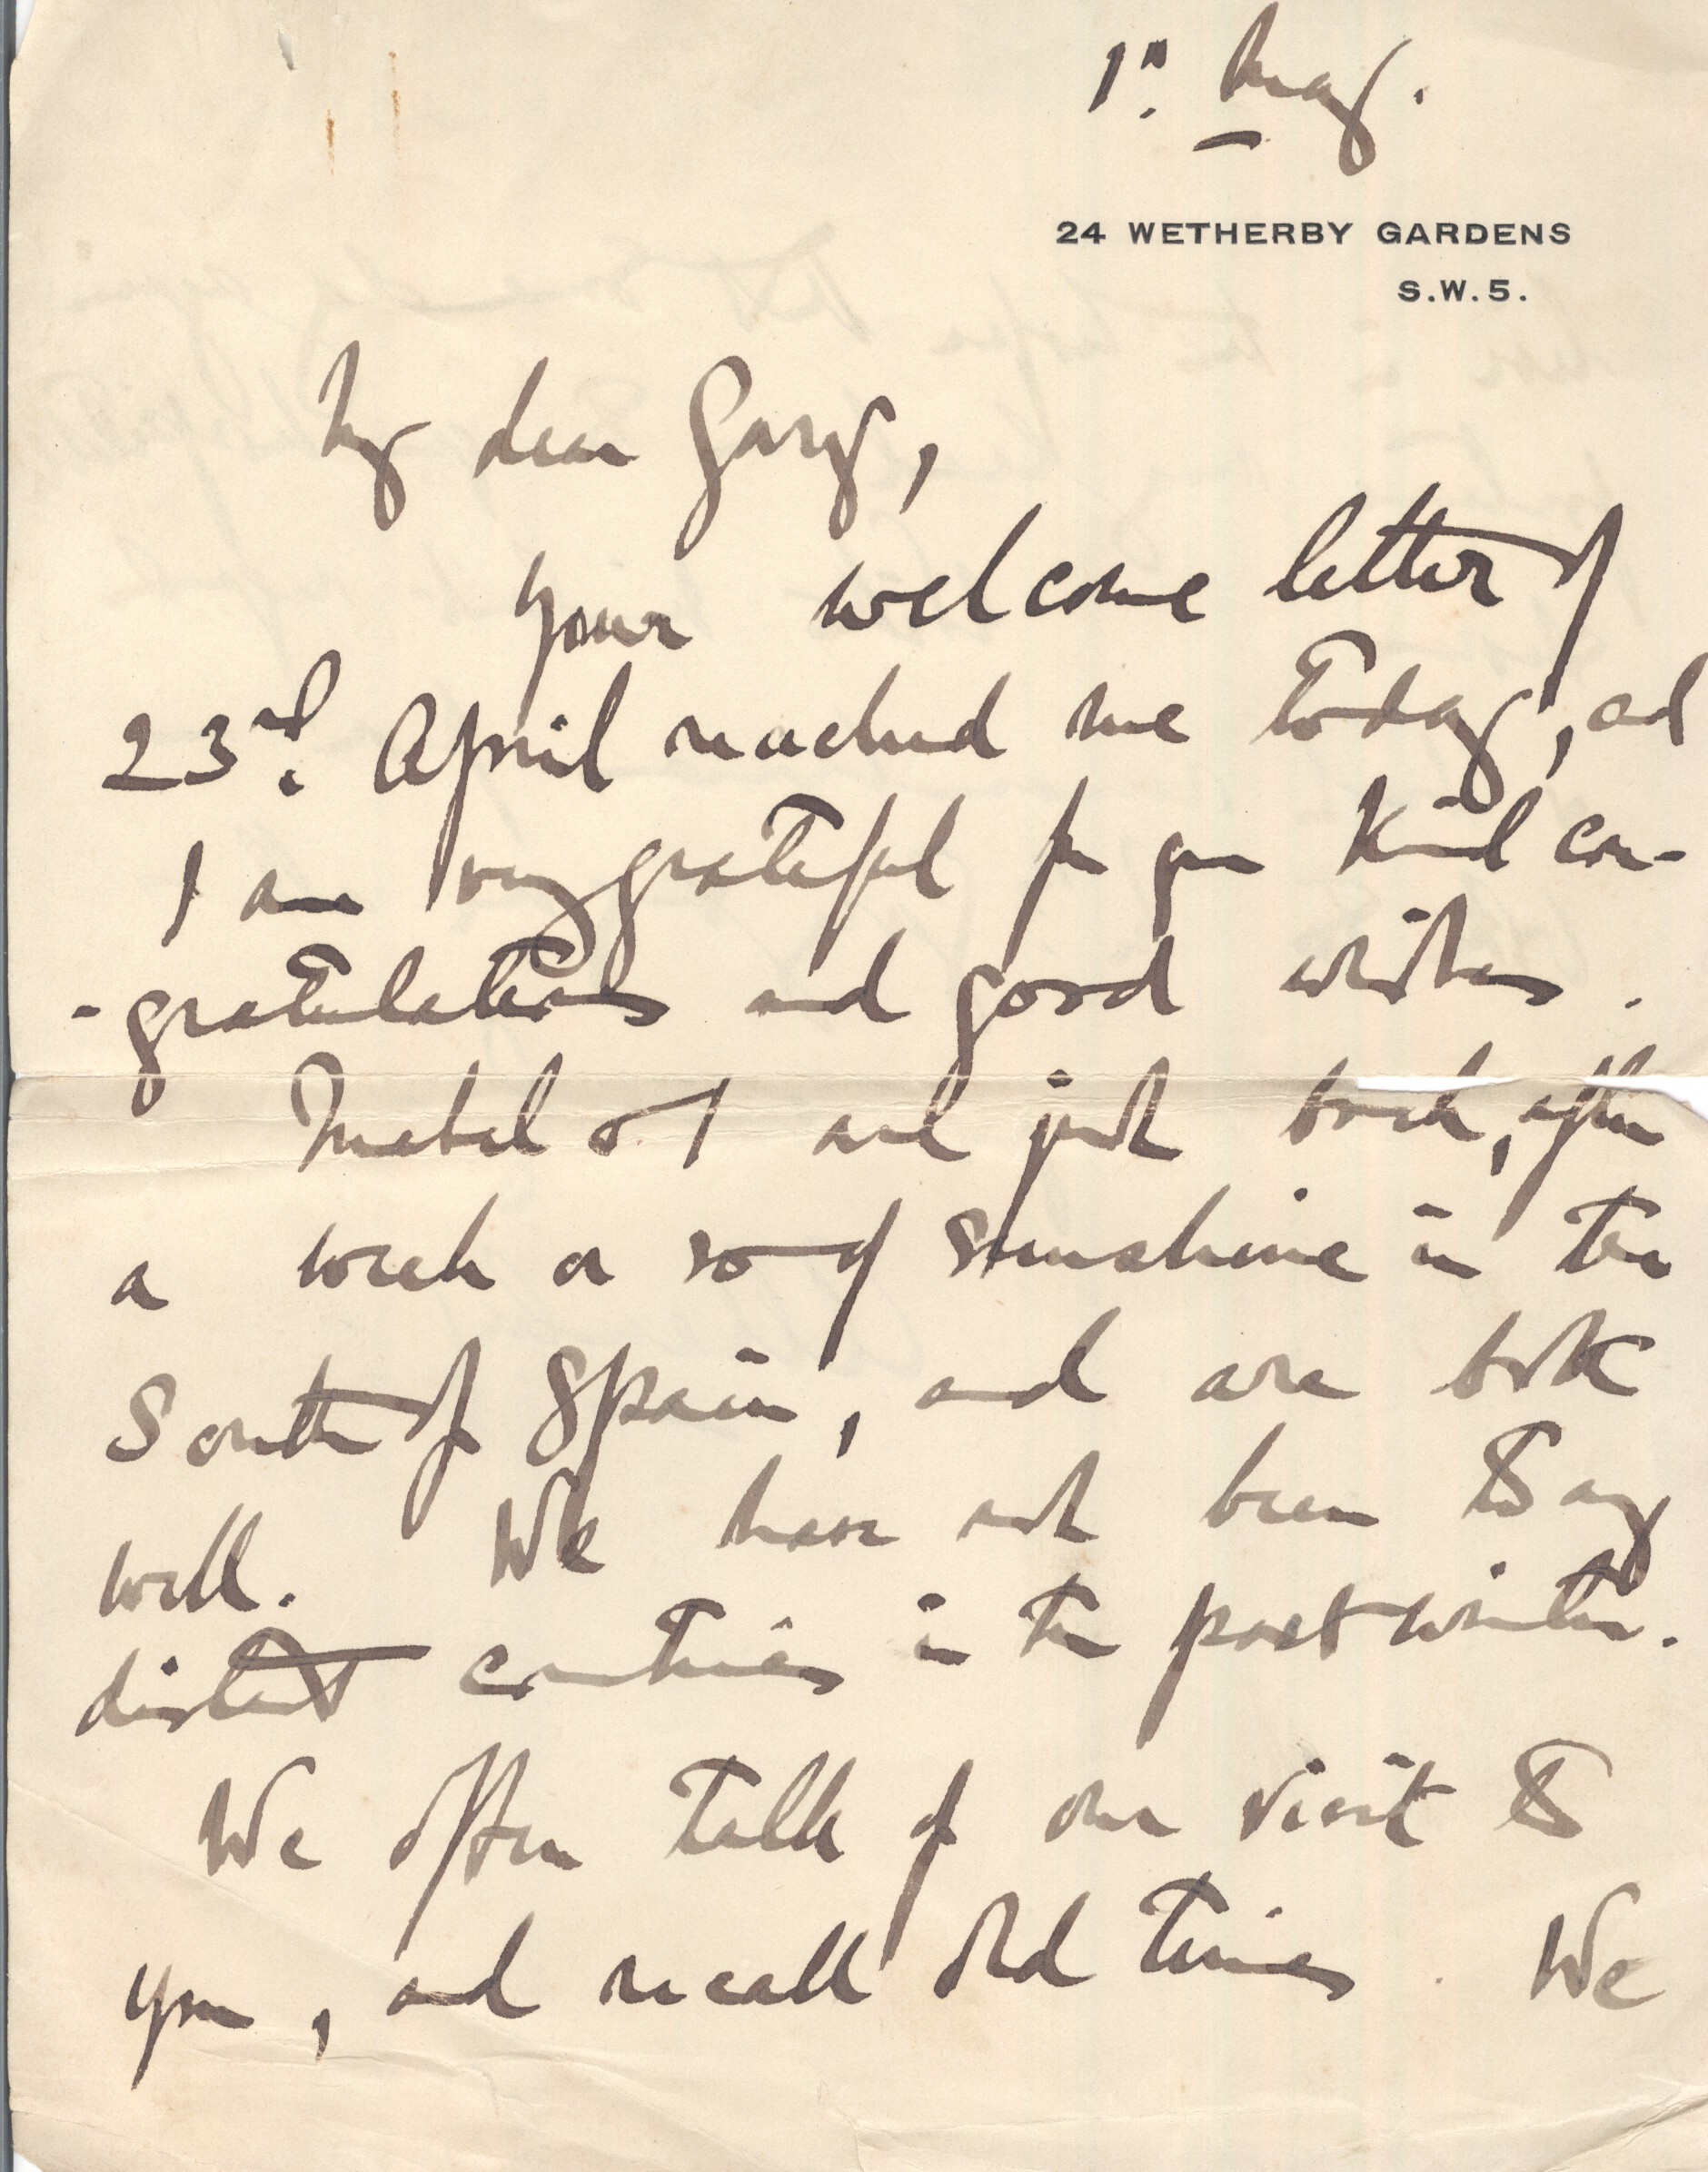 1st. May.
24 WETHERBY GARDENS
S.W.5.
My dear Gary,
your welcome letter of
23rd. April reached me today, and
I am very grateful for your kind con-
-gratulations and good wishes.
Mabel & I are just back, after
a week or so of sunshine in the
South of Spain, and are both
well. We have not been to any
distant countries in the past winter.
We often talk of our visit to
you, and recall old times. We